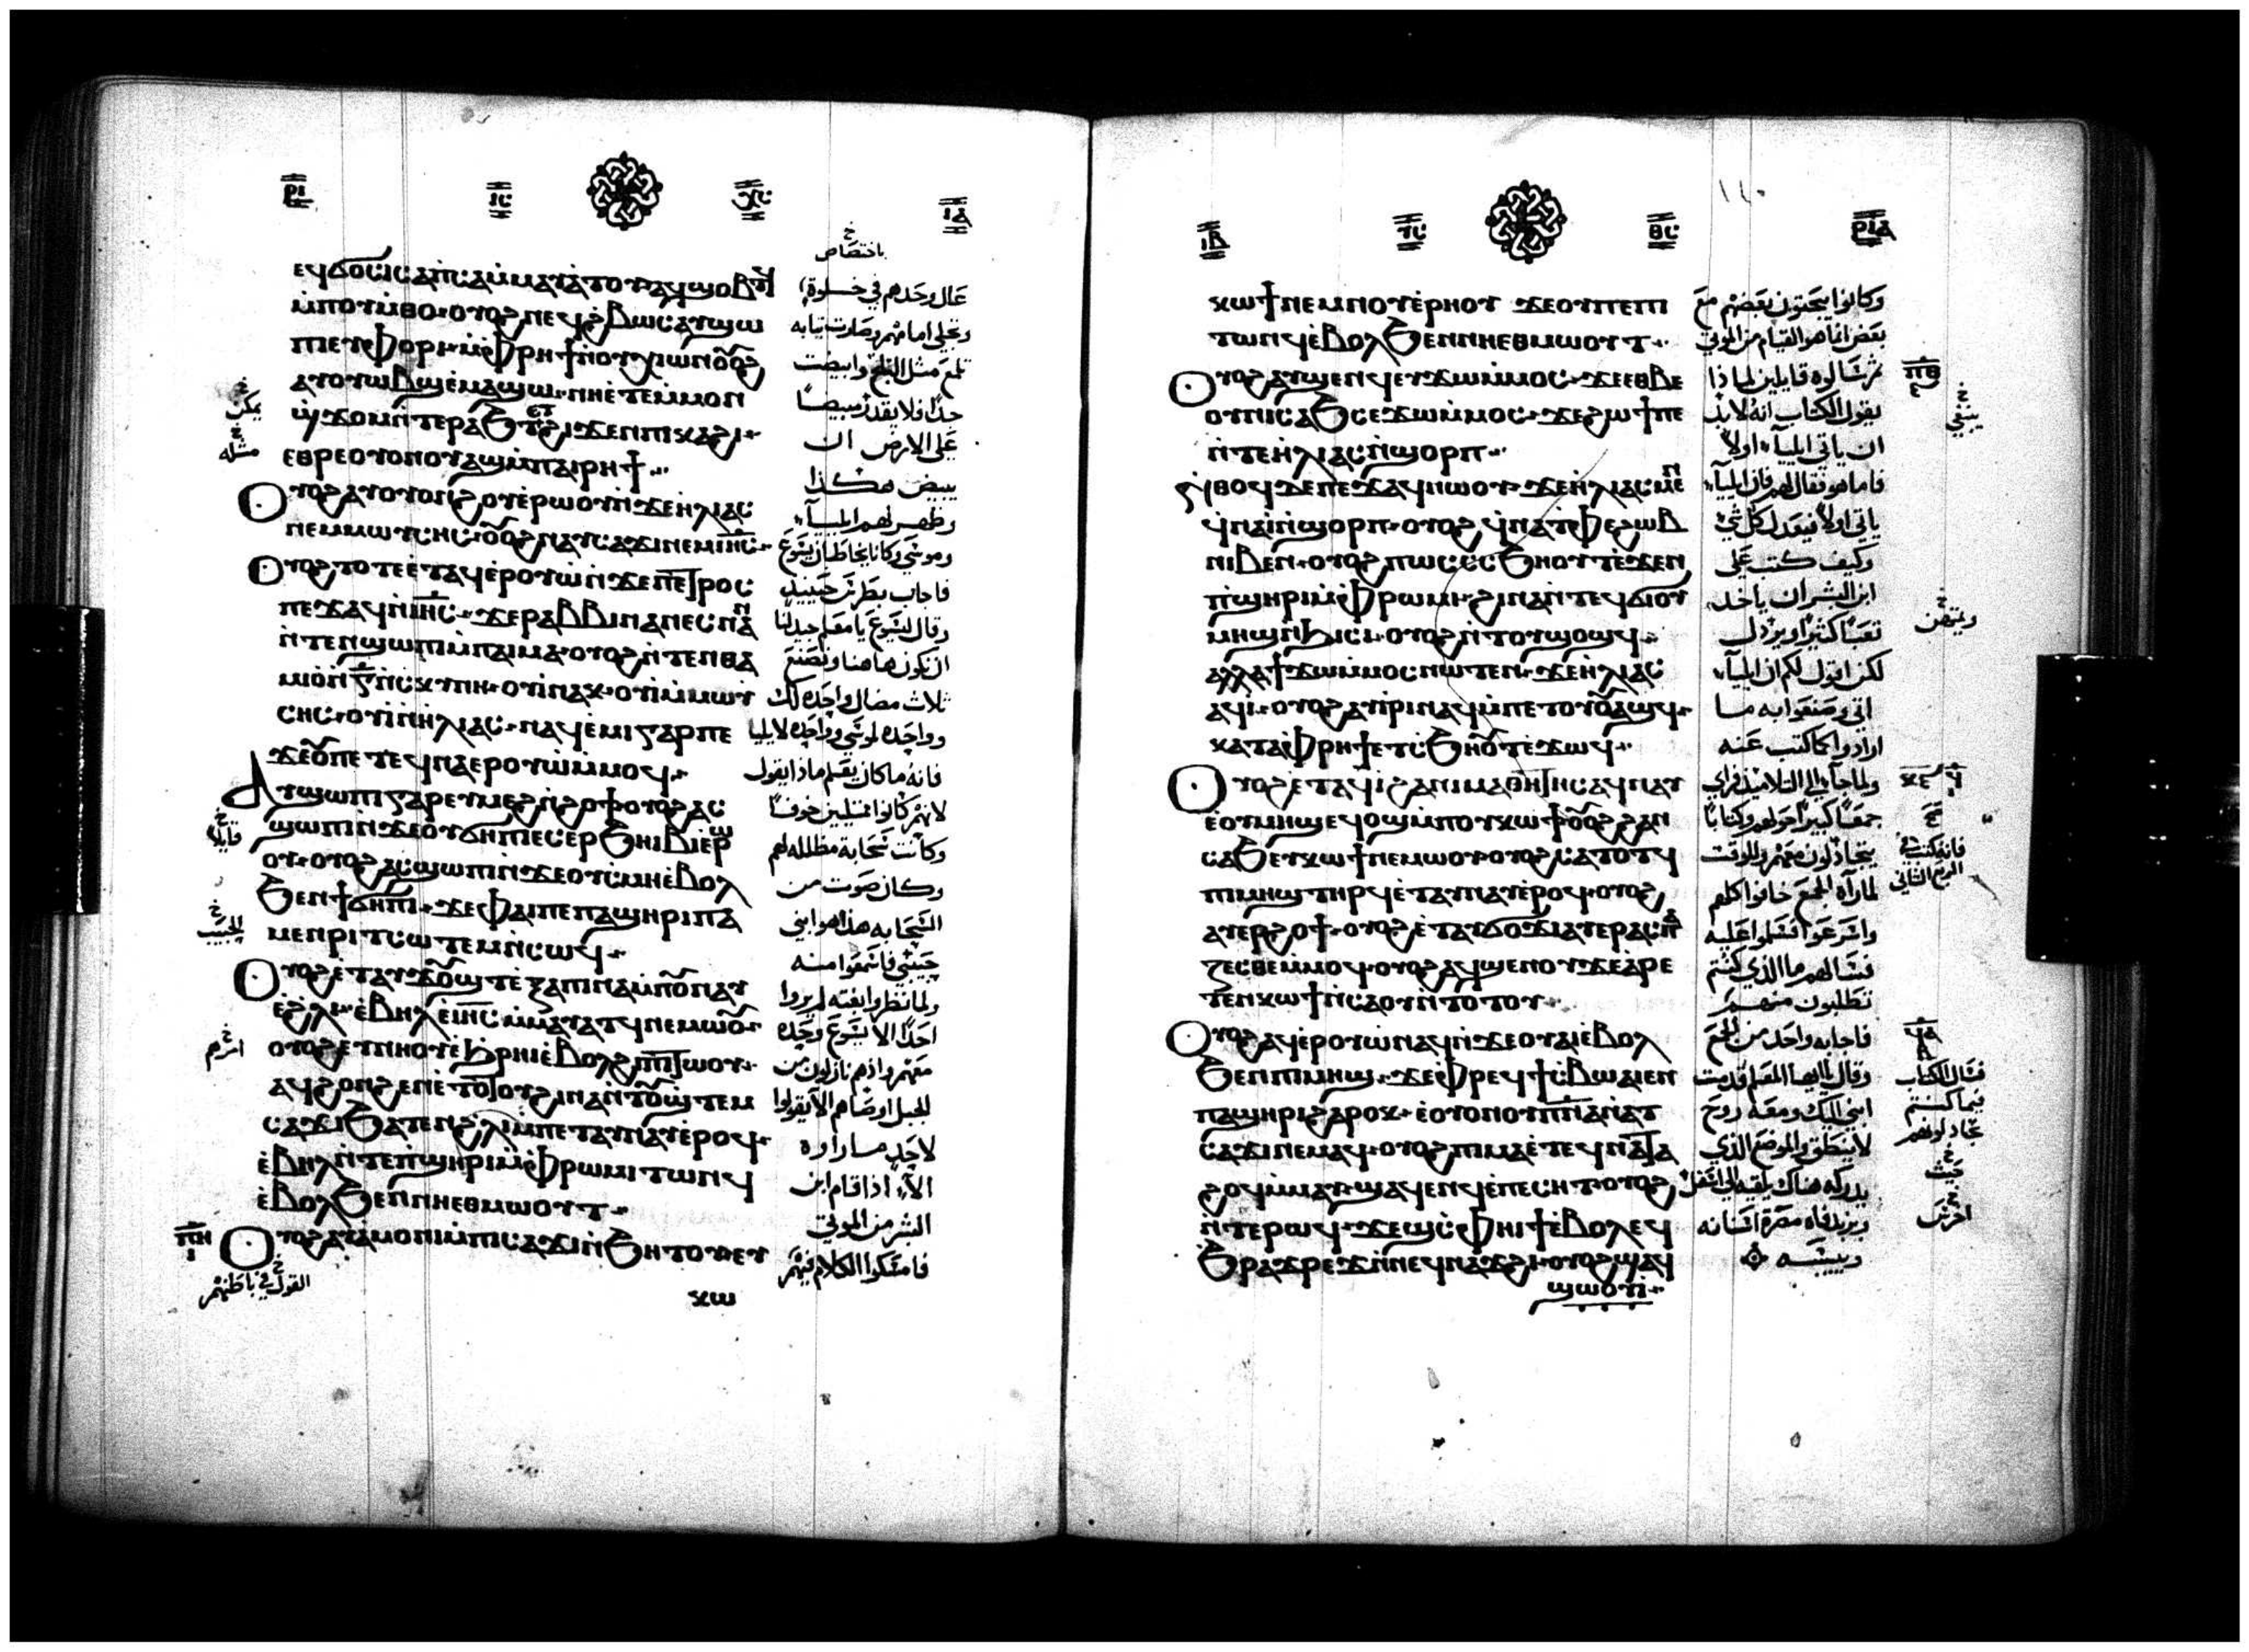 ⲣⲓ
ⲓⲥ ⲭⲥ
ⲓⲇ
ⲉϥϭⲟⲥⲓ ⲥⲁⲡⲥⲁ ⲙⲙⲁⲩⲁⲧⲟⲩ ⲁϥϣⲟⲃⲧϥ
ⲙⲡⲟⲩⲙⲑⲟ ⲟⲩⲟϩ ⲛⲉϥϩⲃⲱⲥ ⲁⲩϣⲱ
ⲡⲓ ⲉⲩⲫⲟⲣⲓ ⲙⲫⲣⲏϯ ⲛⲟⲩⲭⲓⲱⲛ ⲟⲩⲟϩ
ⲁⲩⲟⲩⲱⲃϣ ⲉⲙⲁϣⲱ ⲛⲏ ⲉⲧⲉ ⲙⲙⲟⲛ
ϣϫⲟⲙ ⲛⲧⲉ ⲣⲁϧⲧ ⲉⲧϩⲓϫⲉⲛ ⲡⲓⲕⲁϩⲓ
ⲉⲑⲣⲉ ⲟⲩⲟⲛ ⲟⲩⲁϣ ⲙⲡⲁⲓⲣⲏϯ
ⲟⲩⲟϩ ⲁⲩⲟⲩⲟⲛϩ ⲟⲩ ⲉⲣⲱⲟⲩ ⲛϫⲉ ⲏⲗⲓⲁⲥ
ⲛⲉⲙ ⲙⲱⲩⲥⲏⲥ ⲟⲩⲟϩ ⲛⲁⲩⲥⲁϫⲓ ⲛⲉⲙ ⲓⲏⲥ
ⲟⲩⲟϩ ⲧⲟⲧⲉ ⲉⲧⲁϥⲉⲣⲟⲩⲱ ⲛϫⲉ ⲡⲉⲧⲣⲟⲥ
ⲡⲉϫⲁϥ ⲛⲓⲏⲥ ϫⲉ ⲣⲁⲃⲃⲓ ⲛⲁⲛⲉⲥ ⲛⲁⲛ
ⲛⲧⲉⲛϣⲱⲡⲓ ⲙⲡⲁⲓⲙⲁ ⲟⲩⲟϩ ⲛⲧⲉⲛⲑⲁ
ⲙⲓⲟ ⲛⲅ ⲛⲥⲕⲩⲛⲏ ⲟⲩⲓ ⲛⲁⲕ ⲟⲩⲓ ⲙⲙⲱⲩ
ⲥⲏⲥ ⲟⲩⲓ ⲛⲏⲗⲓⲁⲥ ⲛⲁϥⲉⲙⲓ ⲅⲁⲣ ⲡⲉ
ϫⲉ ⲟⲩ ⲡⲉⲧⲉϥⲛⲁⲉⲣⲟⲩⲱ ⲙⲙⲟϥ
ⲁⲩϣⲱⲡⲓ ⲅⲁⲣ ⲉⲩⲙⲉϩ ⲛϩⲟϯ ⲟⲩⲟϩ ⲁⲥ
ϣⲱⲡⲓ ⲛϫⲉ ⲟⲩϭⲏⲡⲓ ⲉⲥⲉⲣϧⲏⲓⲃⲓ ⲉⲣⲱ
ⲟⲩ ⲟⲩⲟϩ ⲁⲥϣⲱⲡⲓ ⲛϫⲉ ⲟⲩⲥⲙⲏ ⲉⲃⲟⲗ
ϧⲉⲛ ϯϭⲏⲡⲓ ϫⲉ ⲫⲁⲓ ⲡⲉ ⲡⲁϣⲏⲣⲓ ⲡⲁ
ⲙⲉⲛⲣⲓⲧ ⲥⲱⲧⲉⲙ ⲛⲥⲱϥ
ⲟⲩⲟϩ ⲉⲧⲁⲩϫⲟⲩϣⲧ ⲉⲝⲁⲡⲓⲛⲁ ⲙⲡⲟⲩⲛⲁⲩ
ⲉϩⲗⲓ ⲉⲃⲏⲗ ⲉⲓⲏⲥ ⲙⲙⲁⲩⲁⲧϥ ⲛⲉⲙⲱⲟⲩ
ⲟⲩⲟϩ ⲉⲩⲛⲏⲟⲩ ⲉϧⲣⲏⲓ ⲉⲃⲟⲗ ϩⲓ ⲡⲓⲧⲱⲟⲩ
ⲁϥϩⲟⲛϩⲉⲛ ⲉⲧⲟⲧⲟⲩ ϩⲓⲛⲁ ⲛⲧⲟⲩϣⲧⲉⲙ
ⲥⲁϫⲓ ϧⲁⲧⲉⲛ ϩⲗⲓ ⲙⲡⲉⲧⲁⲩⲛⲁⲩ ⲉⲣⲟϥ
ⲉⲃⲏⲗ ⲛⲧⲉ ⲡϣⲏⲣⲓ ⲙⲫⲣⲱⲙⲓ ⲧⲱⲛϥ
ⲉⲃⲟⲗ ϧⲉⲛ ⲛⲏⲉⲑⲙⲱⲟⲩⲧ
ⲡⲏ
ⲟⲩⲟϩ ⲁⲩⲁⲙⲟⲛⲓ ⲙⲡⲓⲥⲁϫⲓ ⲛϧⲏⲧⲟⲩ ⲉⲩ
ⲕⲱ
باختصاص
عال وحدهم في خلوة
وتجلى امامهم وصارت ثيابه
تلمع مثل الثلج وابيضت
جدا فلا يقدر مبيضا
على الارض ان
يبيض هكذا
وظهر لهم ايليا
وموسى وكانا يخاطبان يسوع
فاجاب بطرس حينيذ
وقال ليسوع يا معلم جيد لنا
ان نكون هاهنا ونصنع
ثلاث مضال واحده لك
وواحده لموسى وواحده لايليا
فانه ما كان يعلم ماذا يقول
لانهم كانوا ممتليين خوفا
وكانت سحابة مظلله لهم
وكان صوت من
السحابه هذا هو ابني
حبيبي فاسمعوا منه
ولما نظروا بغته لم يروا
احدا الا يسوع وحده
معهم واذ هم نازلون من
الجبل اوصاهم الا يقولوا
لاحد ما راوه
الا اذا قام ابن
البشر من الموتى
فامسكوا الكلام فيهم
يمكن
مثله
قايلا
الحبيب
امرهم
القول في باطنهم
ⲓⲃ
ⲩⲥ ⲑⲥ
ⲣⲓⲁ
١٤٠
ⲕⲱϯ ⲛⲉⲙ ⲛⲟⲩⲉⲣⲏⲟⲩ ϫⲉ ⲟⲩ ⲡⲉ ⲡⲓ
ⲧⲱⲛϥ ⲉⲃⲟⲗ ϧⲉⲛ ⲛⲏⲉⲑⲙⲱⲟⲩⲧ
ⲟⲩⲟϩ ⲁⲩϣⲉⲛϥ ⲉⲩϫⲱ ⲙⲙⲟⲥ ϫⲉ ⲉⲑⲃⲉ
ⲟⲩ ⲛⲓⲥⲁϧ ⲥⲉϫⲱ ⲙⲙⲟⲥ ϫⲉ ϩⲱϯ ⲡⲉ
ⲛⲧⲉ ⲏⲗⲓⲁⲥ ⲓ ⲛϣⲟⲣⲡ
ⲛⲑⲟϥ ⲇⲉ ⲡⲉϫⲁϥ ⲛⲱⲟⲩ ϫⲉ ⲏⲗⲓⲁⲥ ⲙⲉⲛ
ϥⲛⲁⲓ ⲛϣⲟⲣⲡ ⲟⲩⲟϩ ϥⲛⲁⲧⲫⲉ ϩⲱⲃ
ⲛⲓⲃⲉⲛ ⲟⲩⲟϩ ⲡⲱⲥ ⲥⲥϧⲏⲟⲩⲧ ⲉϫⲉⲛ
ⲡϣⲏⲣⲓ ⲙⲫⲣⲱⲙⲓ ϩⲓⲛⲁ ⲛⲧⲉϥϭⲓ ⲟⲩ
ⲙⲏϣ ⲛϧⲓⲥⲓ ⲟⲩⲟϩ ⲛⲧⲟⲩϣⲟϣϥ
ⲁⲗⲗⲁ ϯϫⲱ ⲙⲙⲟⲥ ⲛⲱⲧⲉⲛ ϫⲉ ⲏⲗⲓⲁⲥ
ⲁϥⲓ ⲟⲩⲟϩ ⲁⲩⲓⲣⲓ ⲛⲁϥ ⲙⲡⲉⲧⲟⲩⲟⲩⲁϣϥ
ⲕⲁⲧⲁ ⲫⲣⲏϯ ⲉⲧⲥϧⲏⲟⲩⲧ ⲉϫⲱϥ
ⲟⲩⲟϩ ⲉⲧⲁϥⲓ ϩⲁ ⲛⲓⲙⲁⲑⲏⲧⲏⲥ ⲁϥⲛⲁⲩ
ⲉⲟⲩⲙⲏϣ ⲉϥⲟϣ ⲙⲡⲟⲩⲕⲱϯ ⲟⲩⲟϩ ϩⲁⲛ
ⲥⲁϧ ⲉⲩⲕⲱϯ ⲛⲉⲙⲱⲟⲩ ⲟⲩⲟϩ ⲥⲁⲧⲟⲧϥ
ⲡⲓⲙⲏϣ ⲧⲏⲣϥ ⲉⲧⲁⲩⲛⲁⲩ ⲉⲣⲟϥ ⲟⲩⲟϩ
ⲁⲩⲉⲣϩⲟϯ ⲟⲩⲟϩ ⲉⲧⲁⲩϭⲟϫⲓ ⲁⲩⲉⲣⲁⲥⲡⲁ
ⲍⲉⲥⲑⲉ ⲙⲙⲟϥ ⲟⲩⲟϩ ⲁϥϣⲉⲛⲟⲩ ϫⲉ ⲁⲣⲉ
ⲧⲉⲛⲕⲱϯ ⲛⲥⲁ ⲟⲩ ⲛⲧⲟⲧⲟⲩ
ⲟⲩⲟϩ ⲁϥⲉⲣⲟⲩⲱ ⲛⲁϥ ⲛϫⲉ ⲟⲩⲁⲓ ⲉⲃⲟⲗ
ϧⲉⲛ ⲡⲓⲙⲏϣ ϫⲉ ⲫⲣⲉϥϯⲥⲃⲱ ⲁⲓⲉⲛ
ⲡⲁϣⲏⲣⲓ ϩⲁⲣⲟⲕ ⲉⲟⲩⲟⲛ ⲟⲩⲡⲛⲁ ⲛⲁⲧ
ⲥⲁϫⲓ ⲛⲉⲙⲁϥ ⲟⲩⲟϩ ⲡⲓⲙⲁ ⲉⲧⲉϥⲛⲁⲧⲁ
ϩⲟϥ ⲙⲙⲁⲩ ϣⲁϥⲉⲛϥ ⲉⲡⲉⲥⲏⲧ ⲟⲩⲟϩ
ⲛⲧⲉⲣⲱϥ ϫⲉϣⲥ ⲫⲏⲓϯ ⲉⲃⲟⲗ ⲉϥ
ϧⲣⲁϫⲣⲉϫ ⲛⲛⲉϥⲛⲁϫϩⲓ ⲟⲩⲟϩ ϣⲁϥ
ϣⲱⲟⲩⲓ
وكانوا يبحثون بعضهم مع
بعض انما هو القيام من الموتى
ثم سالوه قايلين لماذا
يقول الكتاب انه لا بد
ان ياتي ايليا اولا
فاما هو فقال لهم فان ايليا
ياتي اولا فيعدل كل شي
وكيف كتب على
ابن البشر ان ياخذ
تعبا كثيرا ويرذل
لكن اقول لكم ان ايليا
اتى وصنعوا به ما
ارادوا كما كتب عنه
ولما جا الى التلاميذ فراى
جمعا كبيرا حولهم وكتابا
يتجادلون معهم وللوقت
لما راه الجمع خافوا كلهم
واسرعوا فسلموا عليه
فسالهم ما الذي كنتم
تطلبون منهم
فاجابه واحد من الجمع
وقال ايها المعلم قدمت
ابني اليك ومعه روح
لا ينطق والموضع الذي
يدركه هناك يلقيه الى اسفل
ويزبد فاه مصرة اسنانه
وييبسه
ⲡⲑ
ينبغي
ويمتهن
فسال الكتاب
فيما كنتم
تجادلونهم
حيث
اخرس